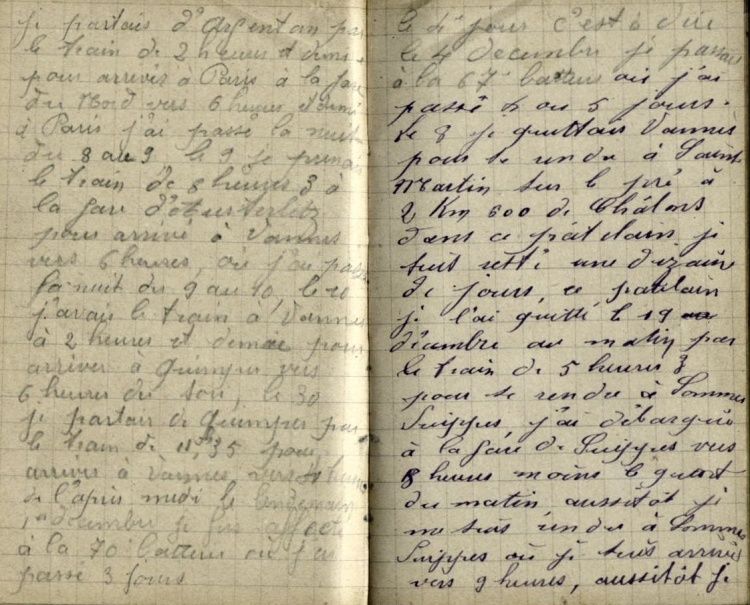 je partais d'Argentan par
le train de 2 heures et demi
pour arriver à Paris à la gare
du Nord vers 6 heures et demi
à Paris j'ai passé la nuit
du 8 au 9, le 9 je prenais
le train de 8 heures 3 à
la gare d'Austerlitz
pour arrivé à Vannes
vers 6 heures, où j'ai passé
la nuit du 9 au 10, le 10
j'avais le train à Vannes
à 2 heures et demie pour
arriver à Quimper vers
6 heures du soir, le 30
je partais de Quimper par
le train de 11h,35 pour
arriver à Vannes vers heures
de l'après midi le lendemain
1er décembre je fus affecté
à la 70e batterie où j'ai
passé 3 jours
le 4e jour c'est à dire
le 4 décembre je passais
à la 67e batterie où j'ai
passé 4 ou 5 jours.
le 8 je quittais Vannes
pour me rendre à Saint
Martin sur le pré à
2 Km 600 de Châlons
dans ce patelain je
suis resté une dizaine
de jours, ce patelain
je l'ai quitté le 19
décembre au matin par
le train de 5 heures 3
pour se rendre à Somme
Suippes, j'ai débarqué
à la gare de Suippes vers
8 heures moins le quart
du matin aussitôt je
me suis rendu à Somme
Suippes où je suis arrivé
vers 9 heures, aussitôt je